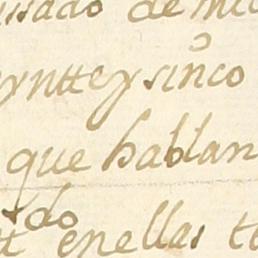 ussado de mic
yntteysinco
que hablan
do
enellas te